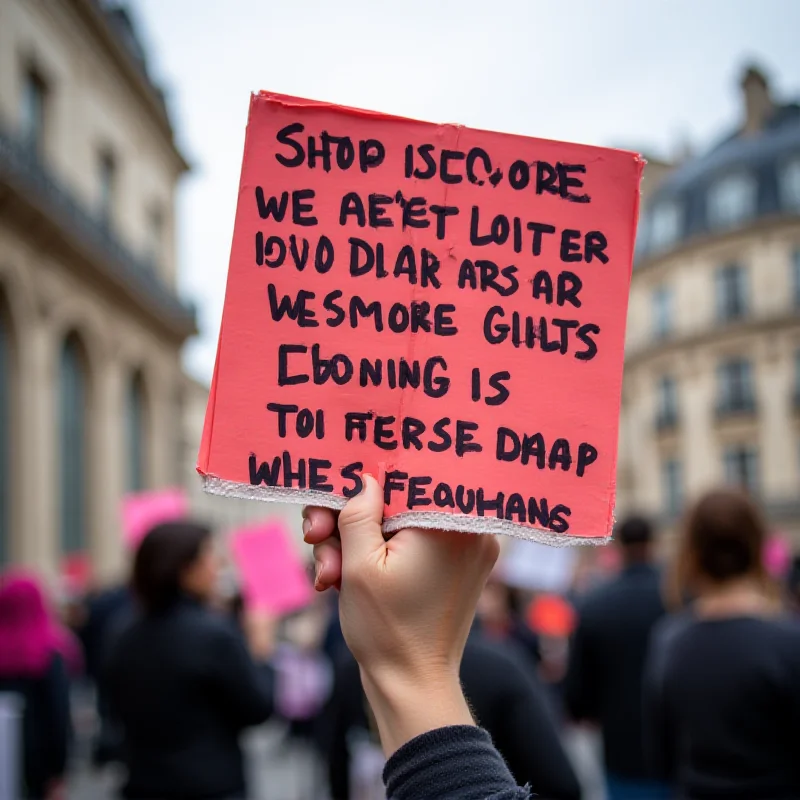 SHOP ISCO ORE
WE AE'ET LOITER
IOVO DIAR ARS AR
WESMORE GIILTS
EBONING IS
TOI FERSE DAAP
WHES FEQUHANS